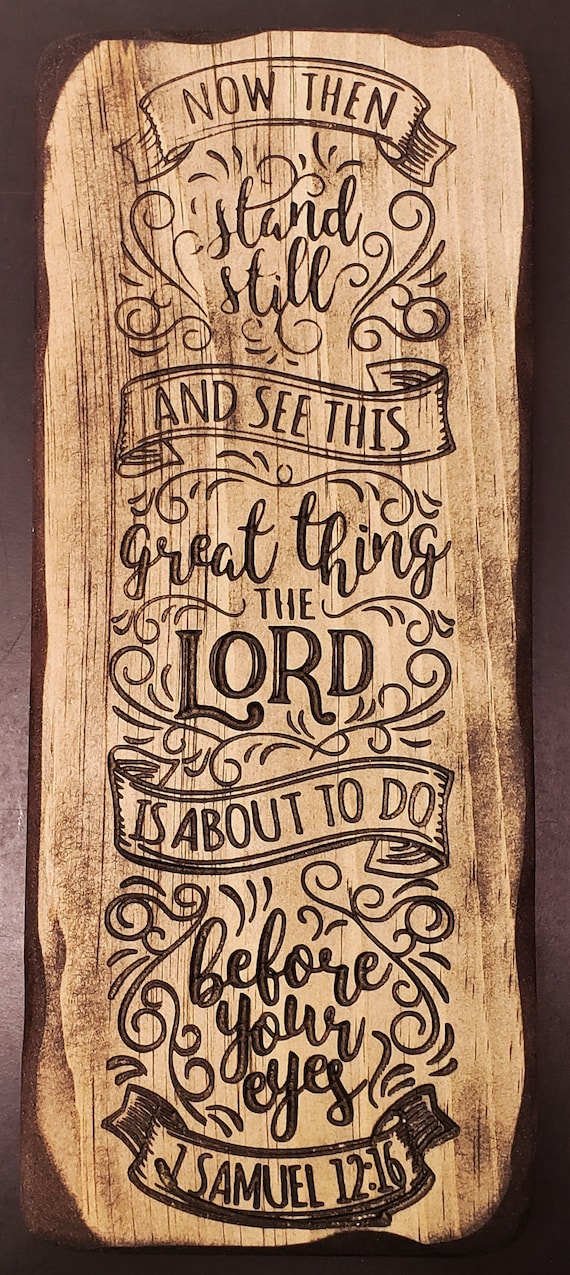 NOW THEN
stand
still
AND SEE THIS
great thing
THE
LORD
IS ABOUT TO DO
before
your
eyes
1 SAMUEL 12:16